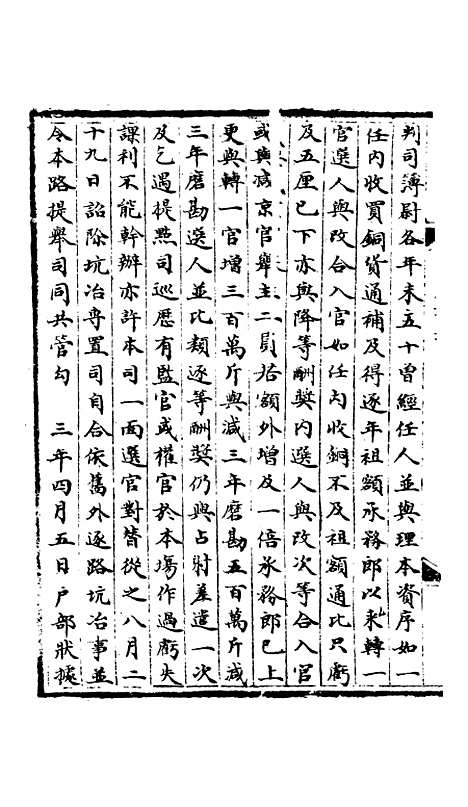 判司簿尉各年未五十曾經任人並與理本資序如一
任内收買銅貨通補及得逐年祖額承務郎以來轉一
官選人與改合入官如任内收銅不及祖額通比只虧
及五厘已下亦與降等酬奬内選人與改次等合入官
或與減京官舉主二員若額外增及一倍承務郎已上
更與轉一官增三百萬斤與減三年磨勘五百萬斤減
三年磨勘選人並比類逐等酬奬仍與占射差遣一次
及乞遇提㸃司巡歴有監官或權官於本場作過虧失
課利不能幹辦亦許本司一面選官對替從之八月二
十九日詔除坑冶専置司自合依舊外逐路坑冶事並
令本路提舉司同共管勾　三年四月五日戸部狀據